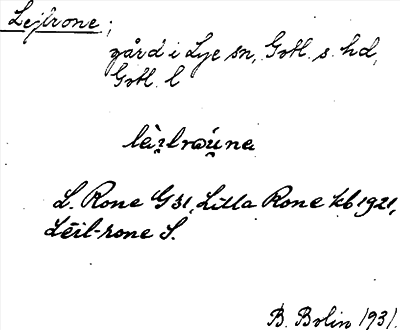 Lejlrone;
gård i Lye sn, Gotl. s. hd,
Gotl. l
lài̯lrωú̯na
L. Rone G31, Lilla Rone kb 1921,
Lēil-rone S.
B. Bolin 1931.